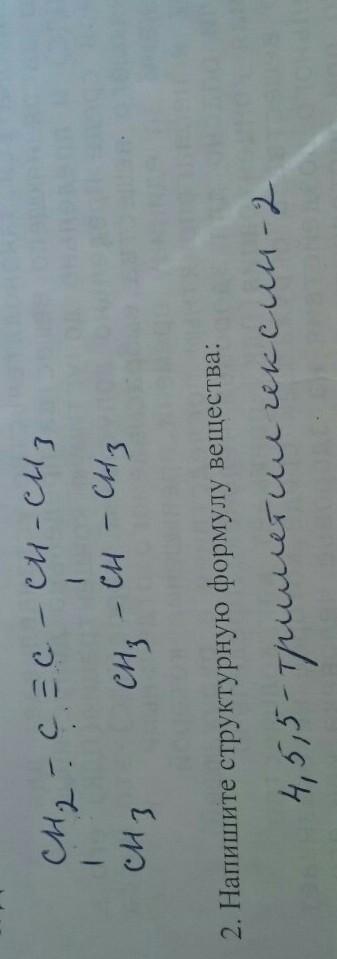 CH2 - C ≡ C - CH - CH3
CH3 CH3 - CH - CH3
2. Напишите структурную формулу вещества:
4,5,5 - триметилгексин - 2